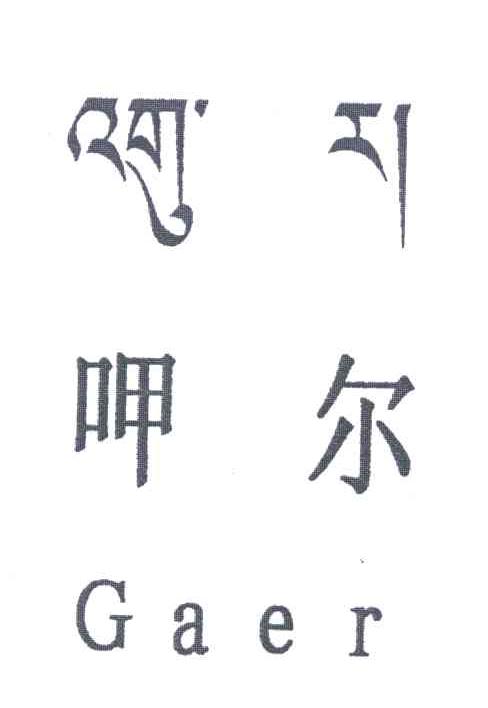 འགུ་ ར།
呷尔
Gaer